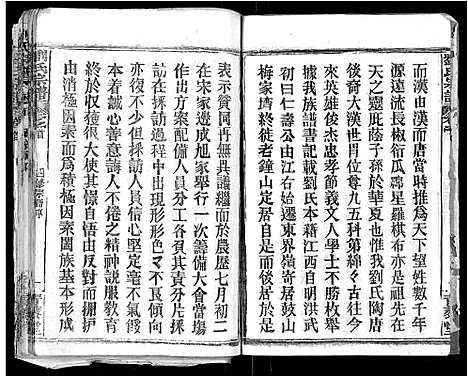 劉氏宗譜
而漢由漢而唐當時推爲天下望姓數千年
源遠流長枝衍瓜綿星羅棋布亦是祖先在
天之靈庇蔭子孫於華夏也惟我劉氏陶唐
後裔大漢世胄位尊九五科第綿々古往今
來英雄俊杰忠孝節義文人學士不勝枚舉
據我族譜書記載劉氏本籍江西自明洪武
初曰仁壽公由江右始遷東界嶺寄居高岩
梅家墻終徙老鐘山定居自是而
表示贊同再無異議繼而於農歷七月初二
在宋家邊成旭家舉行一次籌備大會當場
推選籌備配備人員分工各負其責分片採
訪在採訪過程中出現形形色々不良傾向
亦復不少但採訪人員信心堅定毫不氣餒
本着誠心善意誨人不倦之精神說服教育
終於收穫很大使其憬自悟由反對而擁护
由消極因素而爲積極因素闔族基本形成
劉氏宗譜
卷之首
四修宗譜序